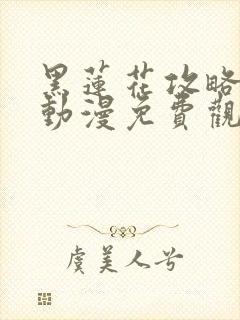 黑蓮花攻略
動漫免費觀
虞美人兮